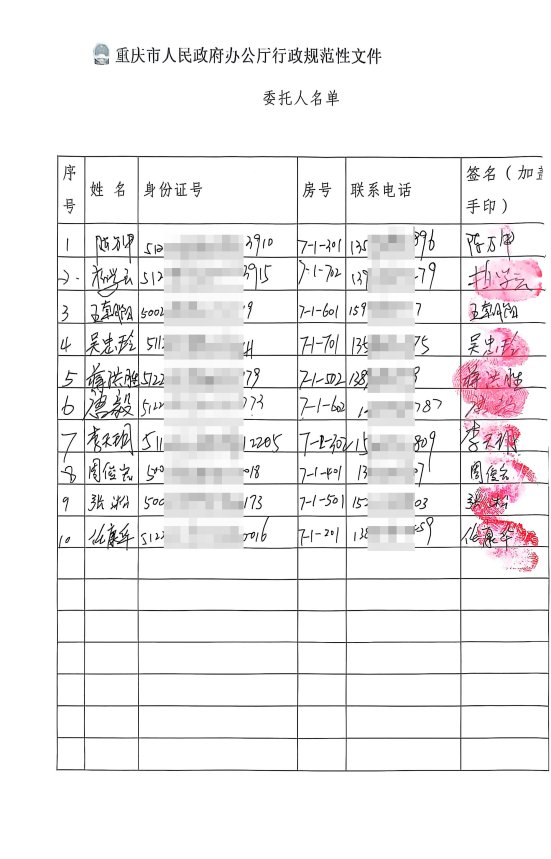 重庆市人民政府办公厅行政规范性文件
委托人名单
序号 姓名 身份证号 房号 联系电话 签名(加盖
手印)
1 512 3910 7-1-301 135 896
2. 512 3915 7-1-702 139 79
3 5002 9 7-1-601 159 7
4 吴忠玲 512 7-1-701 135 75
5 蒋洪胜 5122 79 7-1-502 138 蒋洪胜
6 唐毅 5122 773 7-1-602 787 唐毅
7 李天明 511 12205 7-2-302 15 809 李天明
8 周俊宏 500 018 7-1-401 13 07 周俊宏
9 张松 500 173 7-1-501 152 03 张松
10 任康华 5122 2016 7-1-201 138 59 任康华